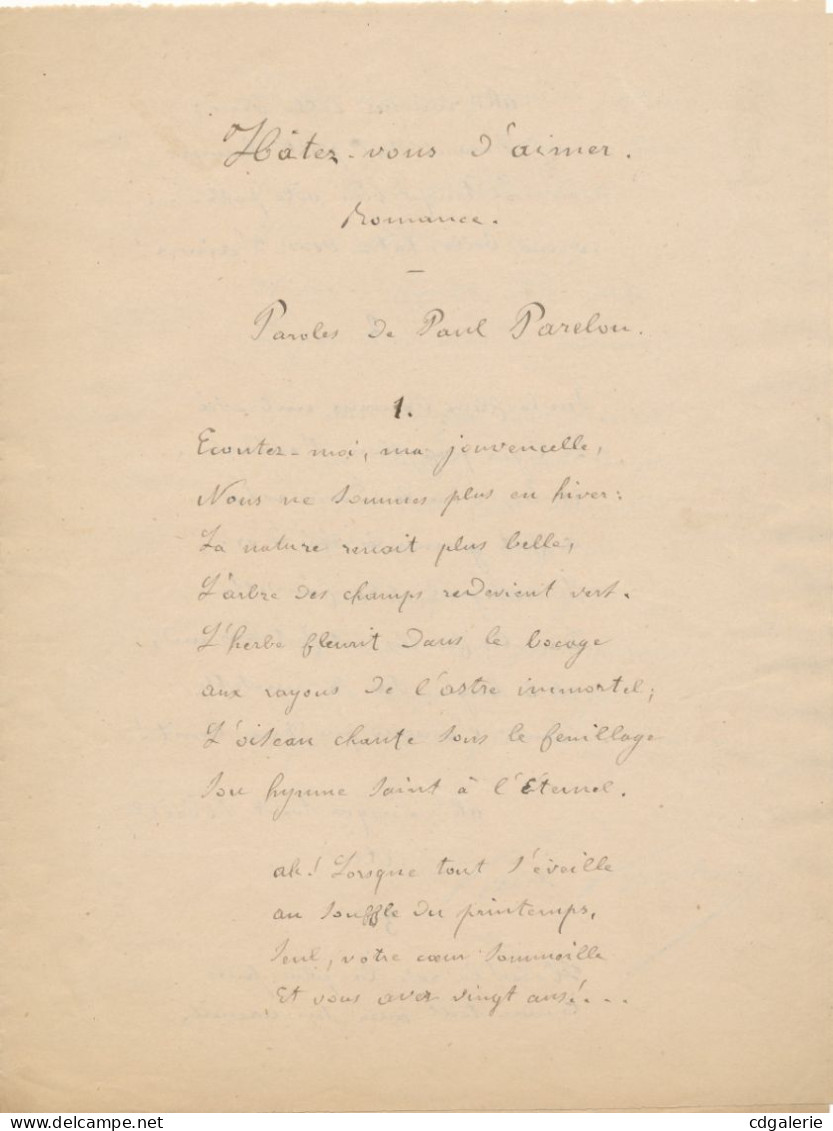 Hâtez-vous d'aimer.
Romance.
Paroles de Paul Parelon.
1.
Ecoutez-moi, ma jouvencelle,
Nous ne sommes plus en hiver:
La nature renait plus belle,
L'arbre des champs redevient vert.
L'herbe fleurit dans le bocage
aux rayons de l'astre immortel;
L'oiseau chante sous le feuillage
son hymne saint à l'Eternel.
ah! Lorsque tout s'éveille
au souffle du printemps,
seul, votre cœur sommeille
Et vous avez vingt ans!...
www.delcampe.net
cdgalerie